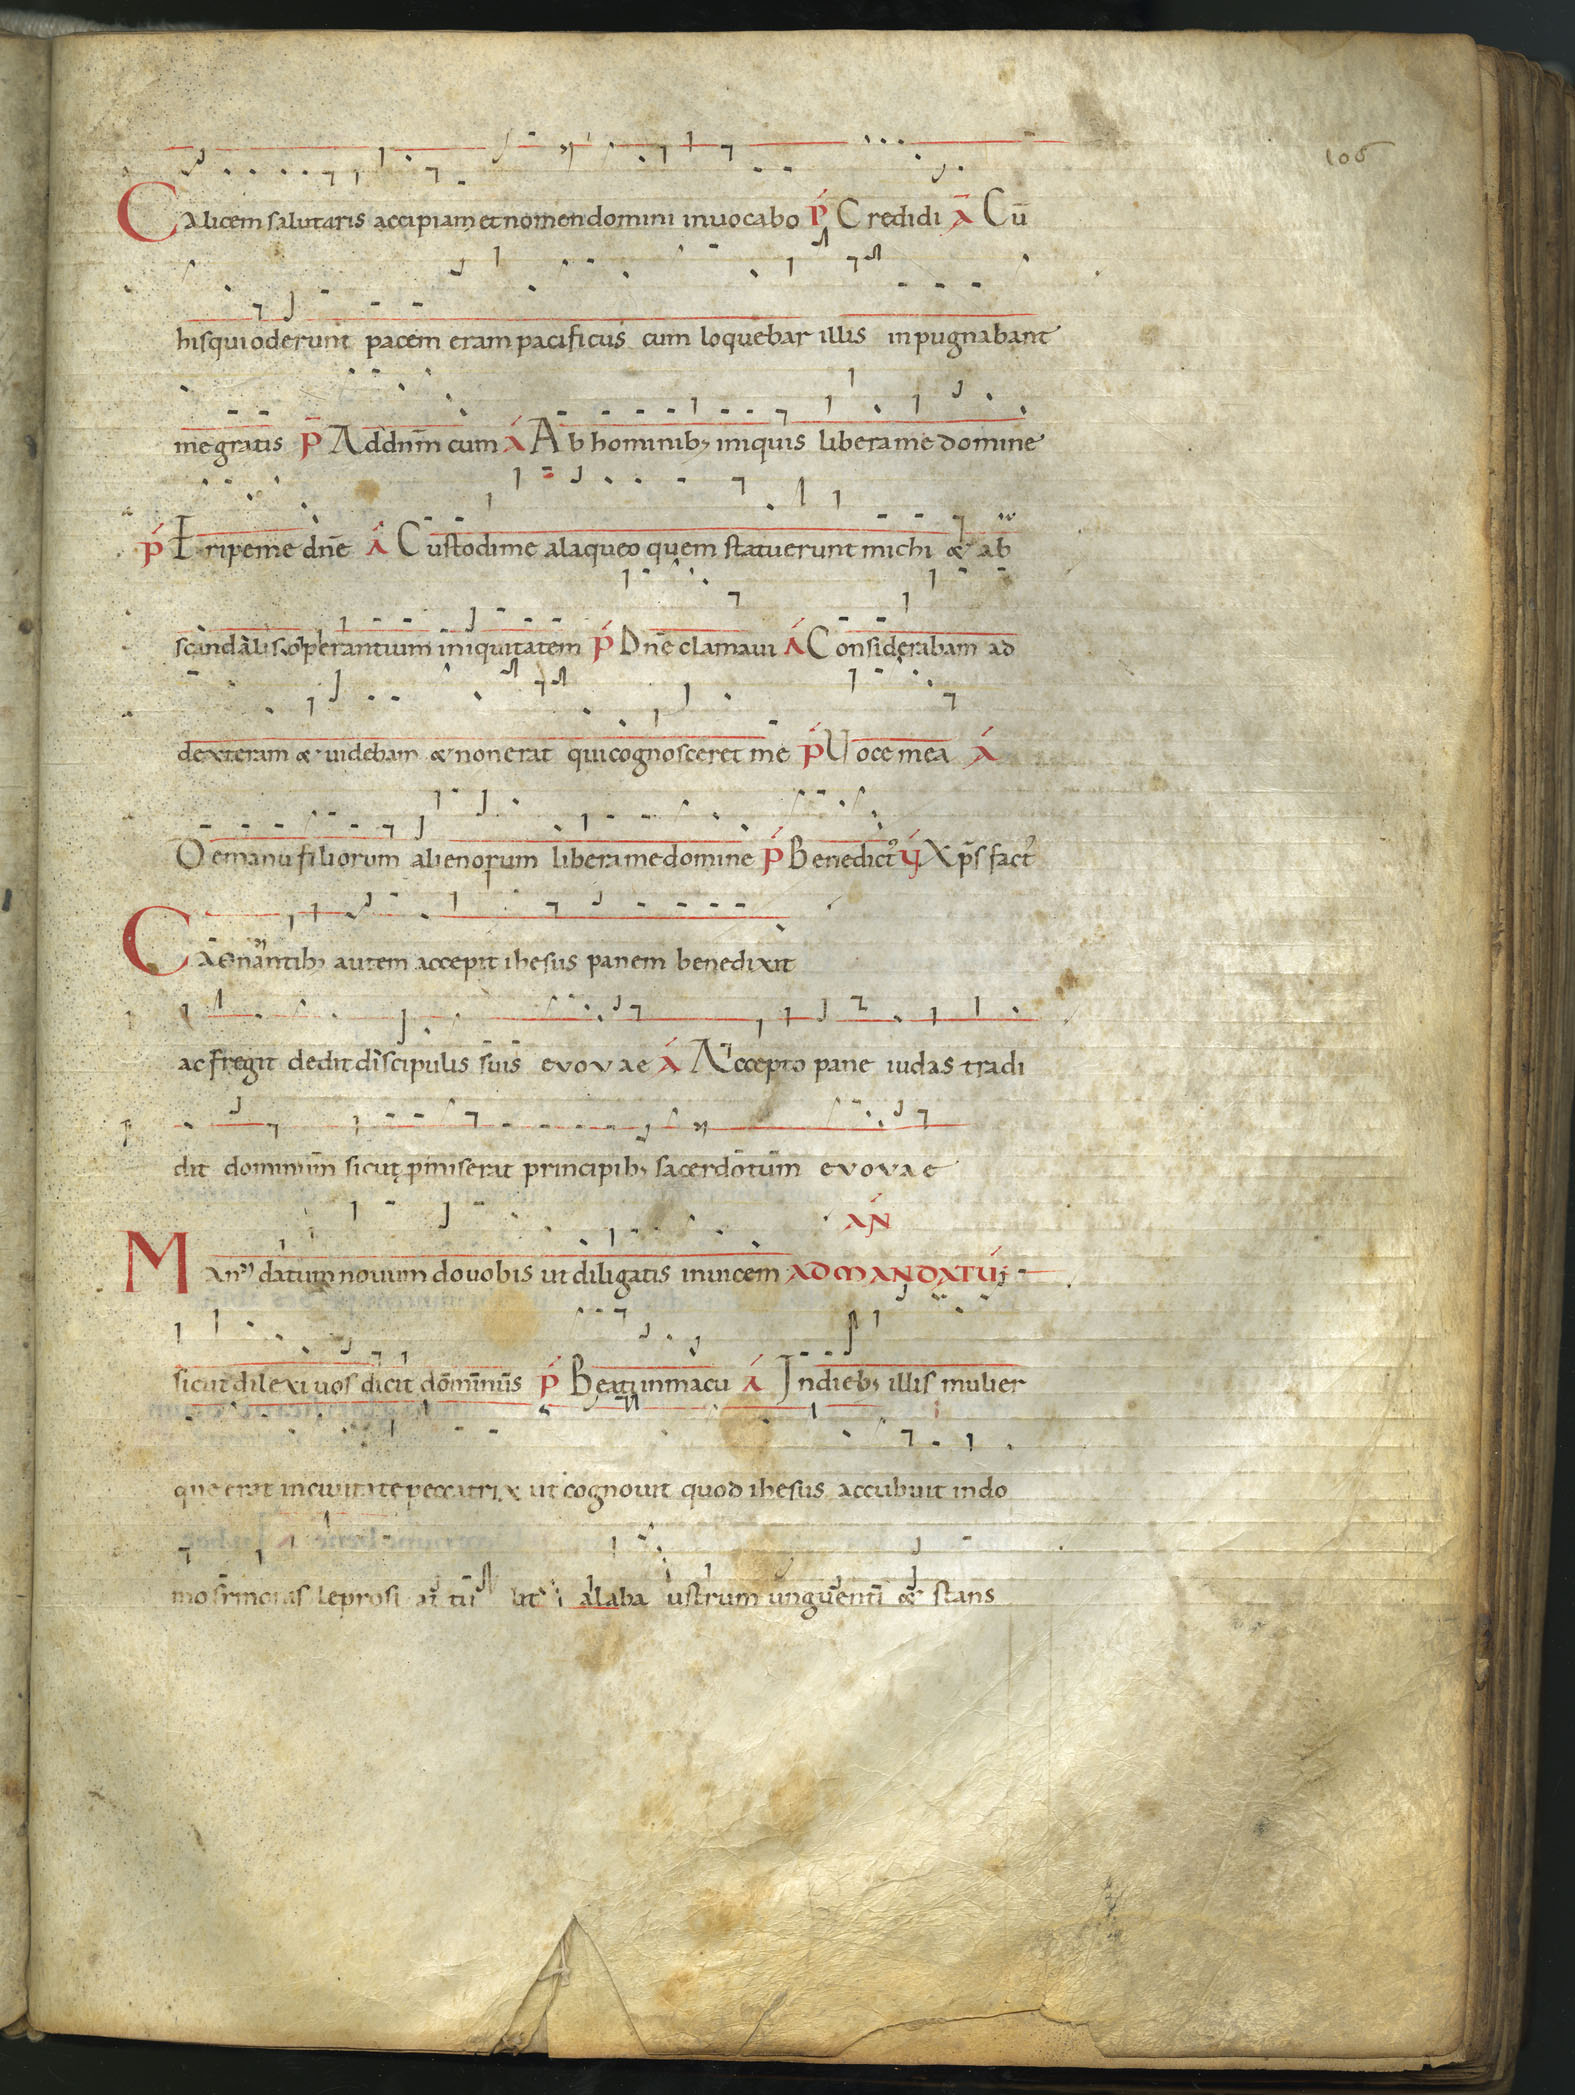 105
Calicem salutaris accipiam et nomen domini inuocabo p̄ Credidi ā Cū
his qui oderunt pacem eram pacificus cum loquebar illis inpugnabant
me gratis p̄ Ad dnm̄ cum ā Ab hominib; iniquis libera me domine
p̄ Eripe me dn̄e ā Custodi me a laqueo quem statuerunt michi & ab
scandalis operantium iniquitatem p̄ Dn̄e clamaui ā Considerabam ad
dexteram & uidebam & non erat qui cognosceret me p̄ Uoce mea ā
De manu filiorum alienorum libera me domine p̄ Benedict' Xp̄s fact'
Caenantib; autem accepit ihesus panem benedixit
ac fregit dedit discipulis suis evovae ā Accepto pane iudas tradi
dit dominum sicut promiserat principib; sacerdotum evovae
AN
Mandatum nouum do uobis ut diligatis inuicem AD MANDATŪ
sicut dilexi uos dicit dominus p̄ Beati inmacu ā In dieb; illis mulier
que erat in ciuitate peccatrix ut cognouit quod ihesus accubuit in do
mo simonis leprosi alaba ustrum unguenti & stans